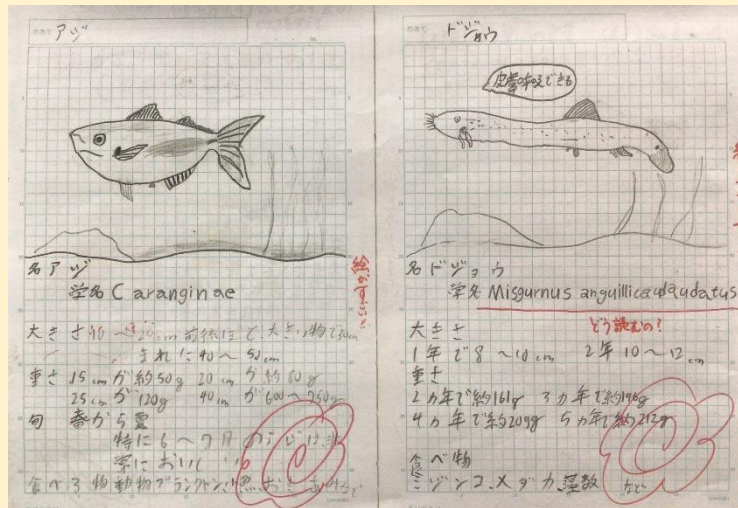 アジ
名 アジ
学名 Caranginae
大きさ 10 cm前後ほど 大きい物で30cm
まれに40〜50cm
重さ 15cmが約50g 20cmが約80g
25cmが120g 40cmが600〜750g
旬 春から夏
特に6〜7月のアジは非
常においしい
食べる物 動物プランクトン
絵がすごい
ドジョウ
皮膚呼吸できる
名 ドジョウ
学名 Misgurnus anguillicaudaudatus
どう読むの?
大きさ
1年で8〜10cm 2年10〜12cm
重さ
2ヵ年で約161g 3ヵ年で約196g
4ヵ年で約209g 5ヵ年で約212g
食べ物
ミジンコ、メダカ、藻類
など